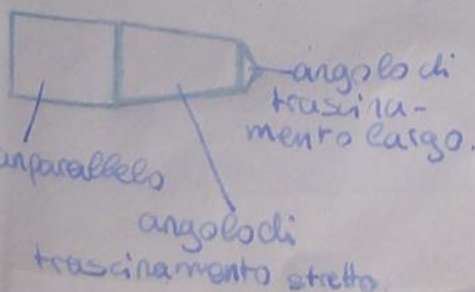 angolo di
trascina-
mento largo.
angolo di
trascinamento stretto